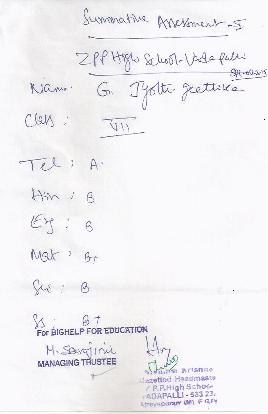 Summative Assessment-I
ZPP High School-Vadapalli
Name: G. Jyothi geethika
Class: VII
Tel: A
Hin: B
Eng: B
Mat: B+
Sci: B
SS: B+
For BIGHELP FOR EDUCATION
MANAGING TRUSTEE
Krishna
Gazetted Headmaste
Z P.P.High School
VADAPALLI - 533 23